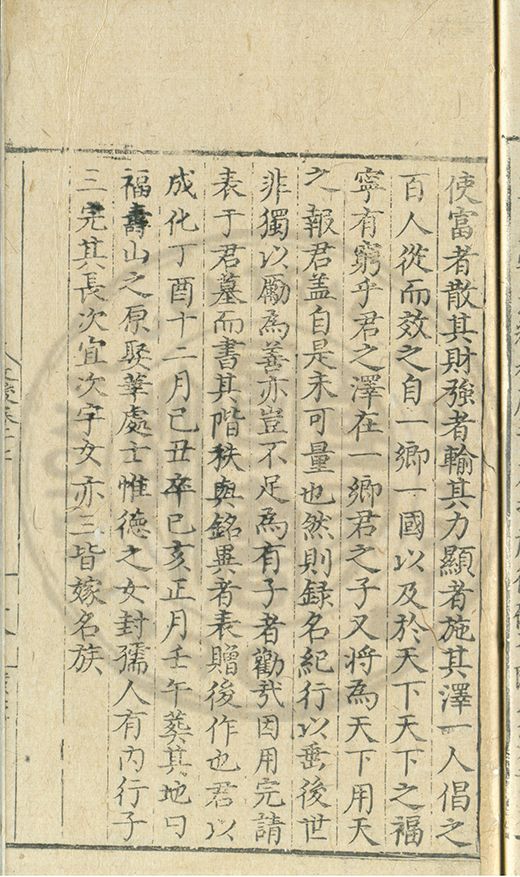 使富者散其財強者輸其力顯者施其澤一人倡之
百人從而效之自一鄉一國以及於天下天下之福
寧有窮乎君之澤在一鄉君之子又将為天下用天
之報君盖自是未可量也然則録名紀行以垂後世
非獨以勵為善亦豈不足為有子者勸哉因用完請
表于君墓而書其階秩與銘異者表贈後作也君以
成化丁酉十二月己丑卒己亥正月壬午葬其地曰
福壽山之原娶華處士惟德之女封孺人有内行子
三完其長次宜次字女亦三皆嫁名族